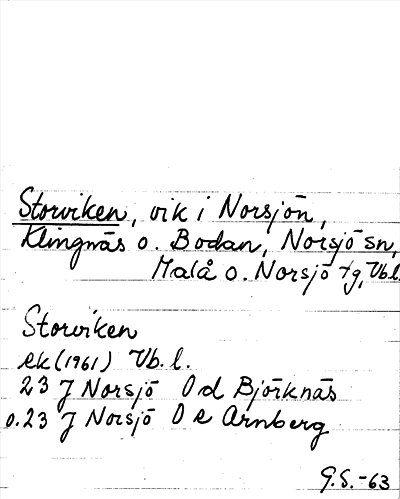 Storviken, vik i Norsjön,
Klingnäs o. Bodan, Norsjö sn,
Malå o. Norsjö tg, Vb.l.
Storviken
ek (1961) Vb. l.
23 J Norsjö O d Björknäs
o. 23 J Norsjö O e Arnberg
G.S. -63